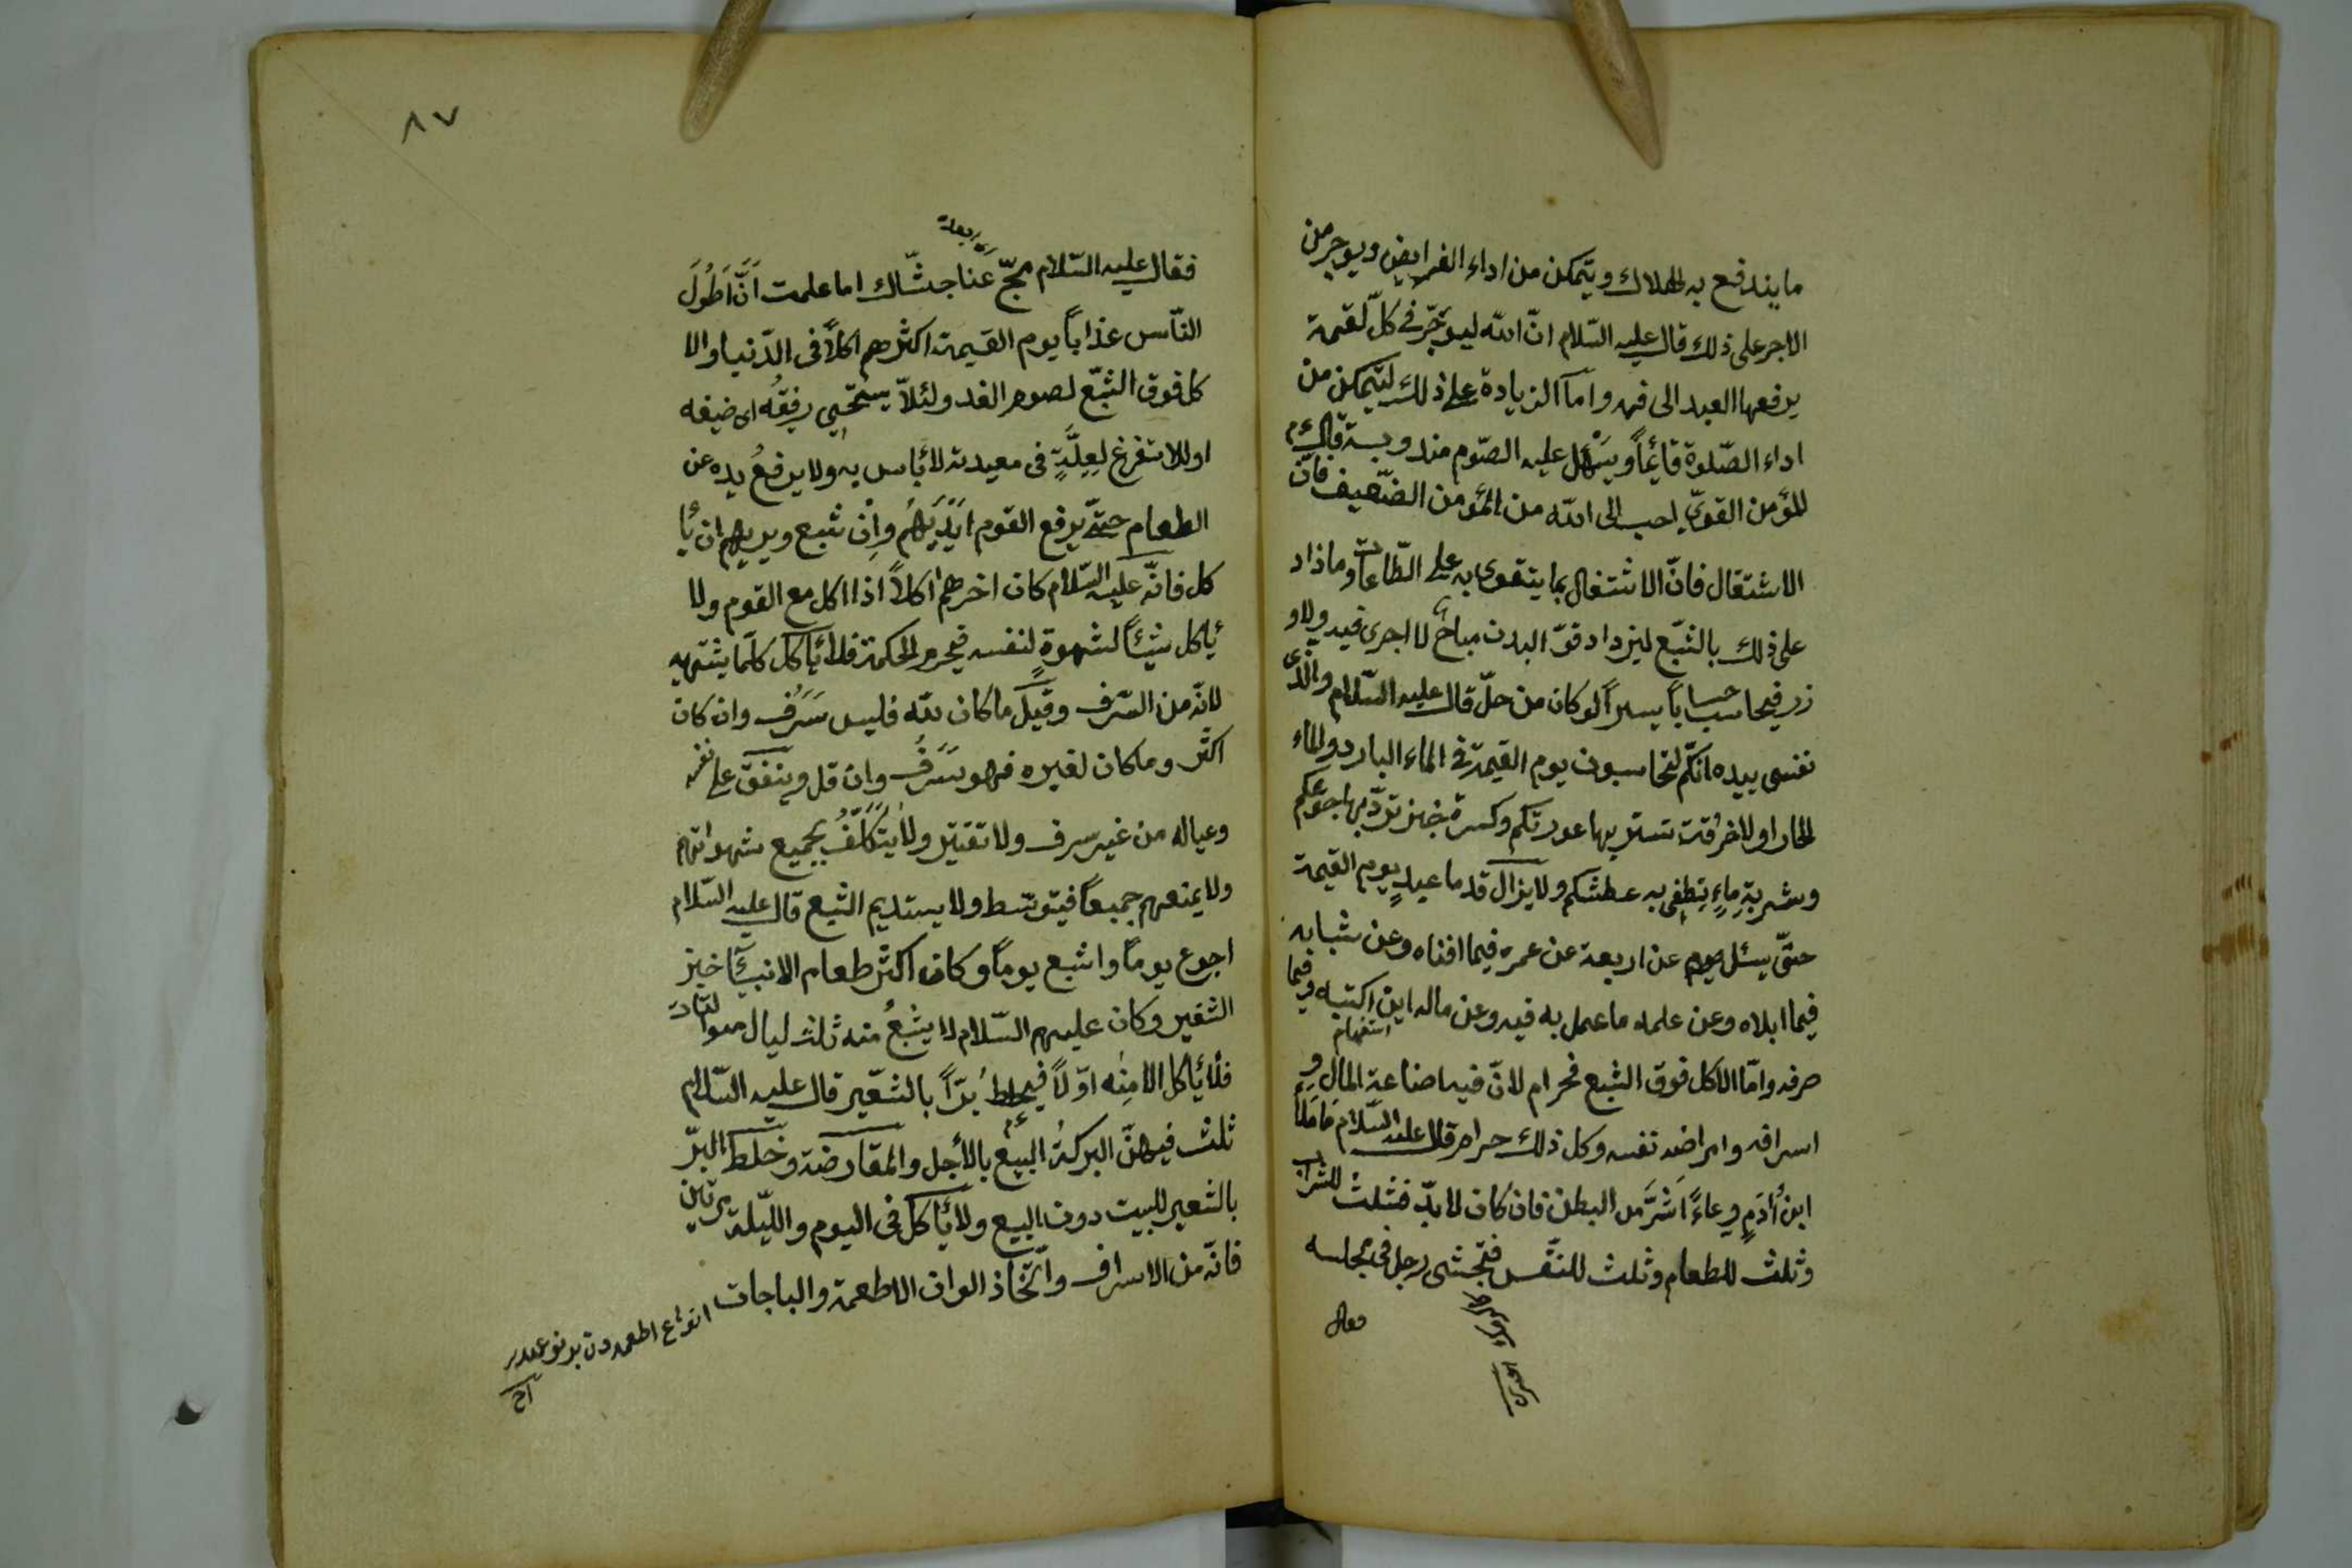 ما يندفع به الهلاك ويتمكن من اداء الفرايض ويوجر من
الاجر على ذلك قال عليه السّلام انّ الله ليوجر فى كلّ لقمة
يرفعها العبد الى فمه وامّا الزيادة على ذلك ليتمكن من
اداء الصّلوة قائماً ويسهل عليه الصّوم مندوبة قال عم
المؤمن القوىّ احب الى الله من المؤمن الضّعيف فانّ
الاشتغال فانّ الاشتغال بما يتقوى به على الطّاعات وما زاد
على ذلك بالشّبع ليزداد قوّ البدن مباح لا اجرى فيه ولا و
زر فيحاسب حساباً يسيراً لو كان من حلّ قال عليه السّلام والذى
نفسى بيده انّكم لتحاسبون يوم القيمة فى الماء البارد والماء
الحار اولا خرقة تستر بها عورتكم وكسرة خبز تردّ بها جوعكم
وشربة ماءٍ يطفى به عطشكم ولا يزال قدما عبدٍ يوم القيمة
حتّى يسئل يوم عن اربعة عن عمره فيما افناه وعن شبابه
فيما ابلاه وعن علمه ما عمل به فيه وعن ماله اين اكتسبه وفيما
استفهام
صرفه وامّا الاكل فوق الشبع فحرام لانّ فيه اضاعة المال و
اسرافه وامراضه نفسه وكل ذلك حرام قال عليه السّلام ما ملأ
ابن أدمٍ وعاءً اشرّ من البطن فان كان لا بدّ فثلث للشراب
وثلث للطعام وثلث للنّفس فتجشى رجل فى مجلسه
فقال
٨٧
فقال عليه السّلام نحّ عنا جشّاك اما علمت انّ اطول
النّاس عذاباً يوم القيمة اكثرهم اكلاً فى الدّنيا والا
كل فوق الشبّع لصوم الغد ولئلاّ يستحيى رفيقه اى ضيفه
او للاستفرغ لعلّةٍ فى معيدته لا بأس به ولا يرفع يده عن
الطعام حتّى يرفع القوم ايديهم وان شبع ويريهم ان يأ
كل فانّه عليه السّلام كان اخرهم اكلاً اذا اكل مع القوم ولا
يأكل شيئاً لشهوةٍ لنفسه فيحرم الحكمة فلا يأكل كلّما يشتهيه
لانّه من السّرف وقيل ما كان لله فليس سرف وان كان
اكثر وما كان لغيره فهو سرف وان قل وينفق على نفسه
وعياله من غير سرف ولا تقتير ولا يتكلّف بجميع شهواتهم
ولا يمنعهم جميعاً فيتوسّط ولا يستديم الشبع قال عليه السّلام
اجوع يوماً واشبع يوماً وكان اكثر طعام الانبيآ خبز
الشعير وكان عليهم السّلام لا يشبع منه ثلث ليال
فلا يأكل الا منه اوّلاً فيخلط بُرّاً بالشعير قال عليه السّلام
ثلث فيهنّ البركة البيع بالأجل والمقارضة وخلط البرّ
بالشعير للبيت دون البيع ولا يأكل فى اليوم واللّيلة مرتين
فانّه من الاسراف واتّخاذ الوان الاطعمة والباجات
انواع اطعمه دن بر نوعدر
اخ